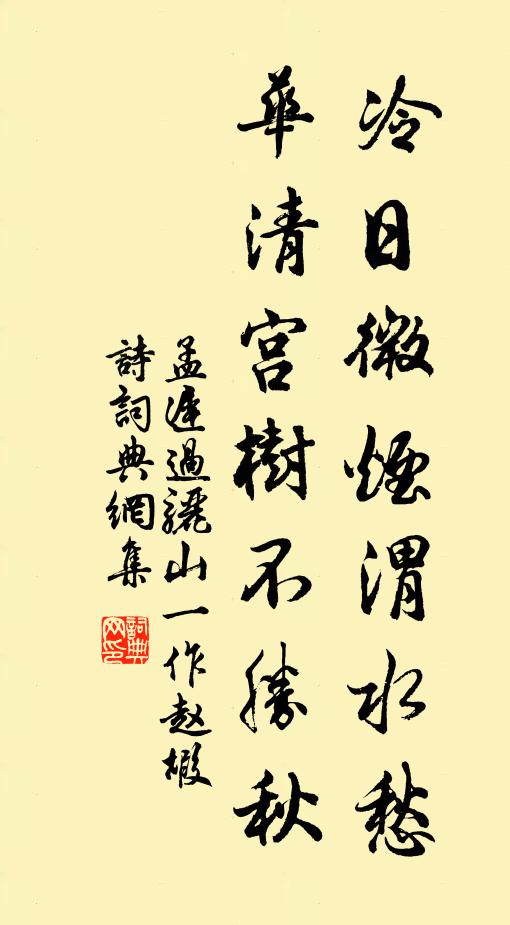 冷日微煙渭水愁
華清宮樹不勝秋
孟遲過驪山一作趙嘏
詩詞典網集
詞典网印